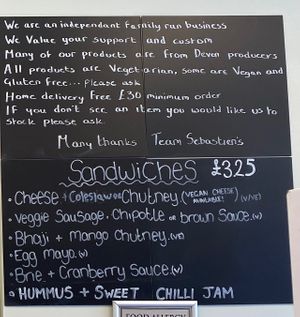 We are an independant Family run business
We Value your support and custom
Many of our products are from Devon producers
All products are Vegetarian, some are Vegan and
Gluten Free... Please ask
Home delivery Free £30 minimum order
IF you don't see an item you would like us to
Stock please ask.
Many thanks Team Sebastien's
SandwiCHes £3.25
• Cheese + Coleslaw or Chutney (VEGAN CHEESE AVAILABLE!) (V/VE)
• Veggie Sausage, Chipotle or brown Sauce. (V)
• Bhaji + Mango Chutney. (VE)
• Egg Mayo. (V)
• Brie + Cranberry Sauce. (V)
• HUMMUS + SWEET CHILLI JAM
FOOD ALLERGY